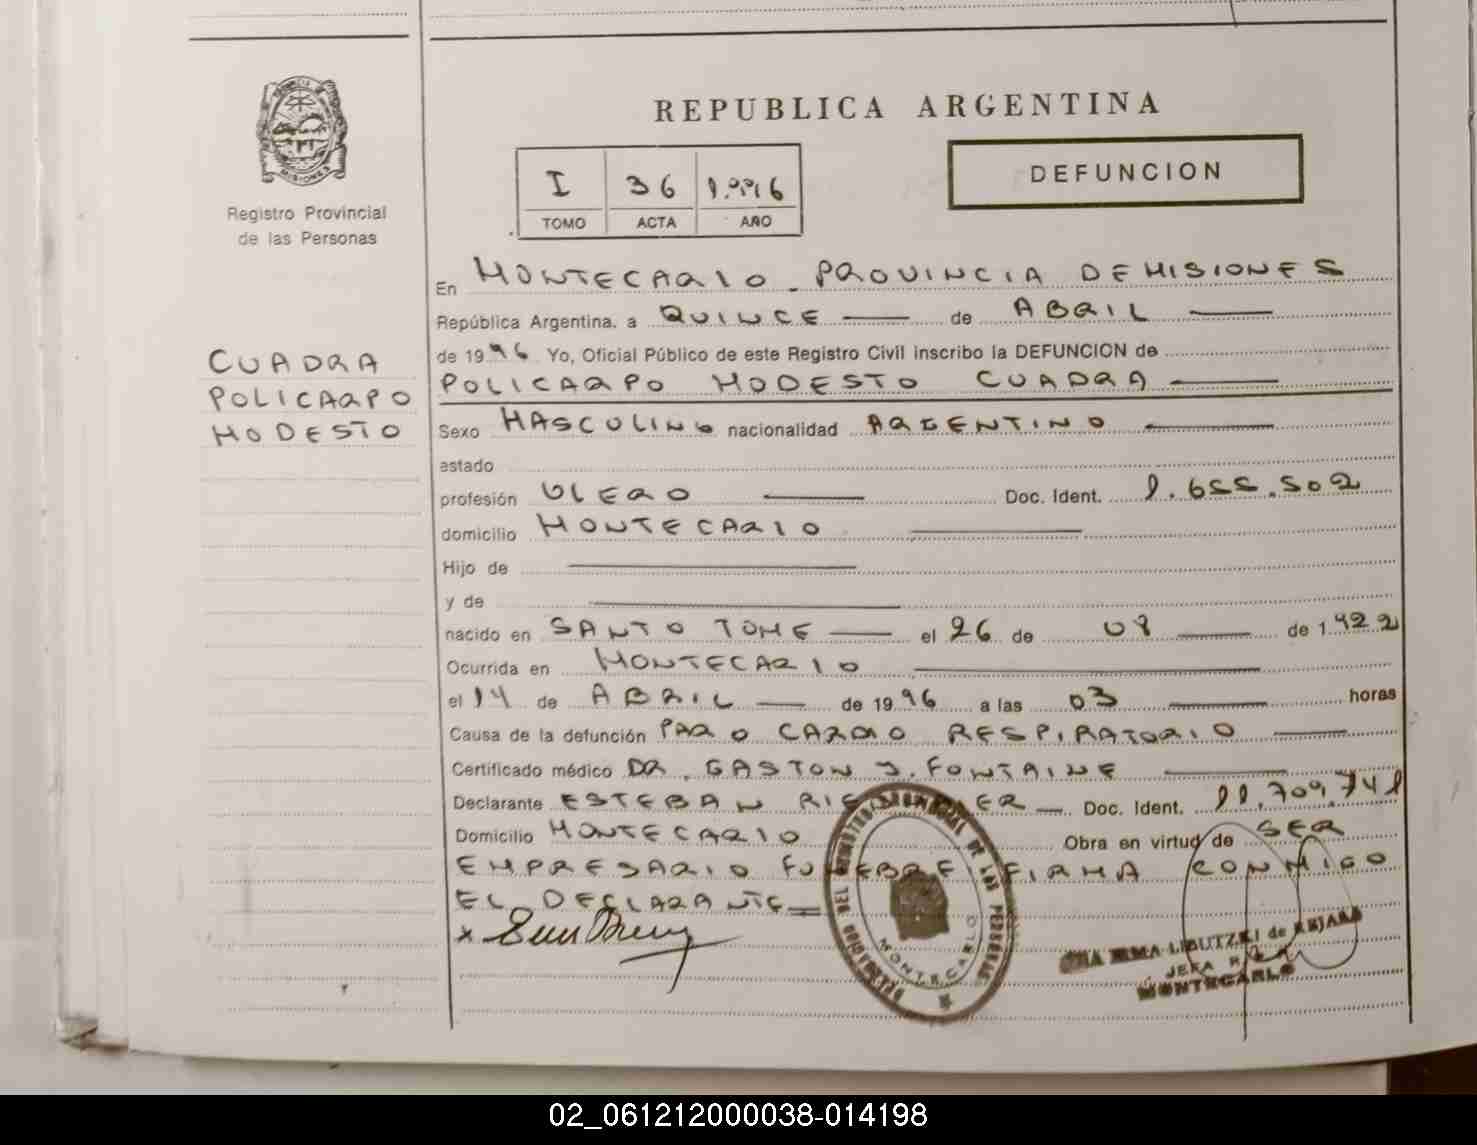 PROVINCIA DE
MISIONES
Registro Provincial
de las Personas
CUADRA
POLICARPO
MODESTO
REPUBLICA ARGENTINA
I 36 1.996
TOMO ACTA AÑO
DEFUNCION
En MONTECARLO - PROVINCIA DE MISIONES
República Argentina, a QUINCE de ABRIL
de 1996 Yo, Oficial Público de este Registro Civil inscribo la DEFUNCION de
POLICARPO MODESTO CUADRA
Sexo MASCULINO nacionalidad ARGENTINO
estado
profesión OLERO Doc. Ident. 1.655.502
domicilio MONTECARLO
Hijo de
y de
nacido en SANTO TOME el 26 de 01 de 1922
Ocurrida en MONTECARLO
el 14 de ABRIL de 1996 a las 03 horas
Causa de la defunción PARO CARDIO RESPIRATORIO
Certificado médico DR. GASTON J. FONTAINE
Declarante ESTEBAN Doc. Ident. 11.709.741
Domicilio MONTECARLO Obra en virtud de SER
EMPRESARIO FUNEBRE FIRMA CONMIGO
EL DECLARANTE
x
DELEGACION DEL REGISTRO PROVINCIAL DE LAS PERSONAS
MONTECARLO
IRMA LIBUTZKI de
JEFA
MONTECARLO
02_061212000038-014198